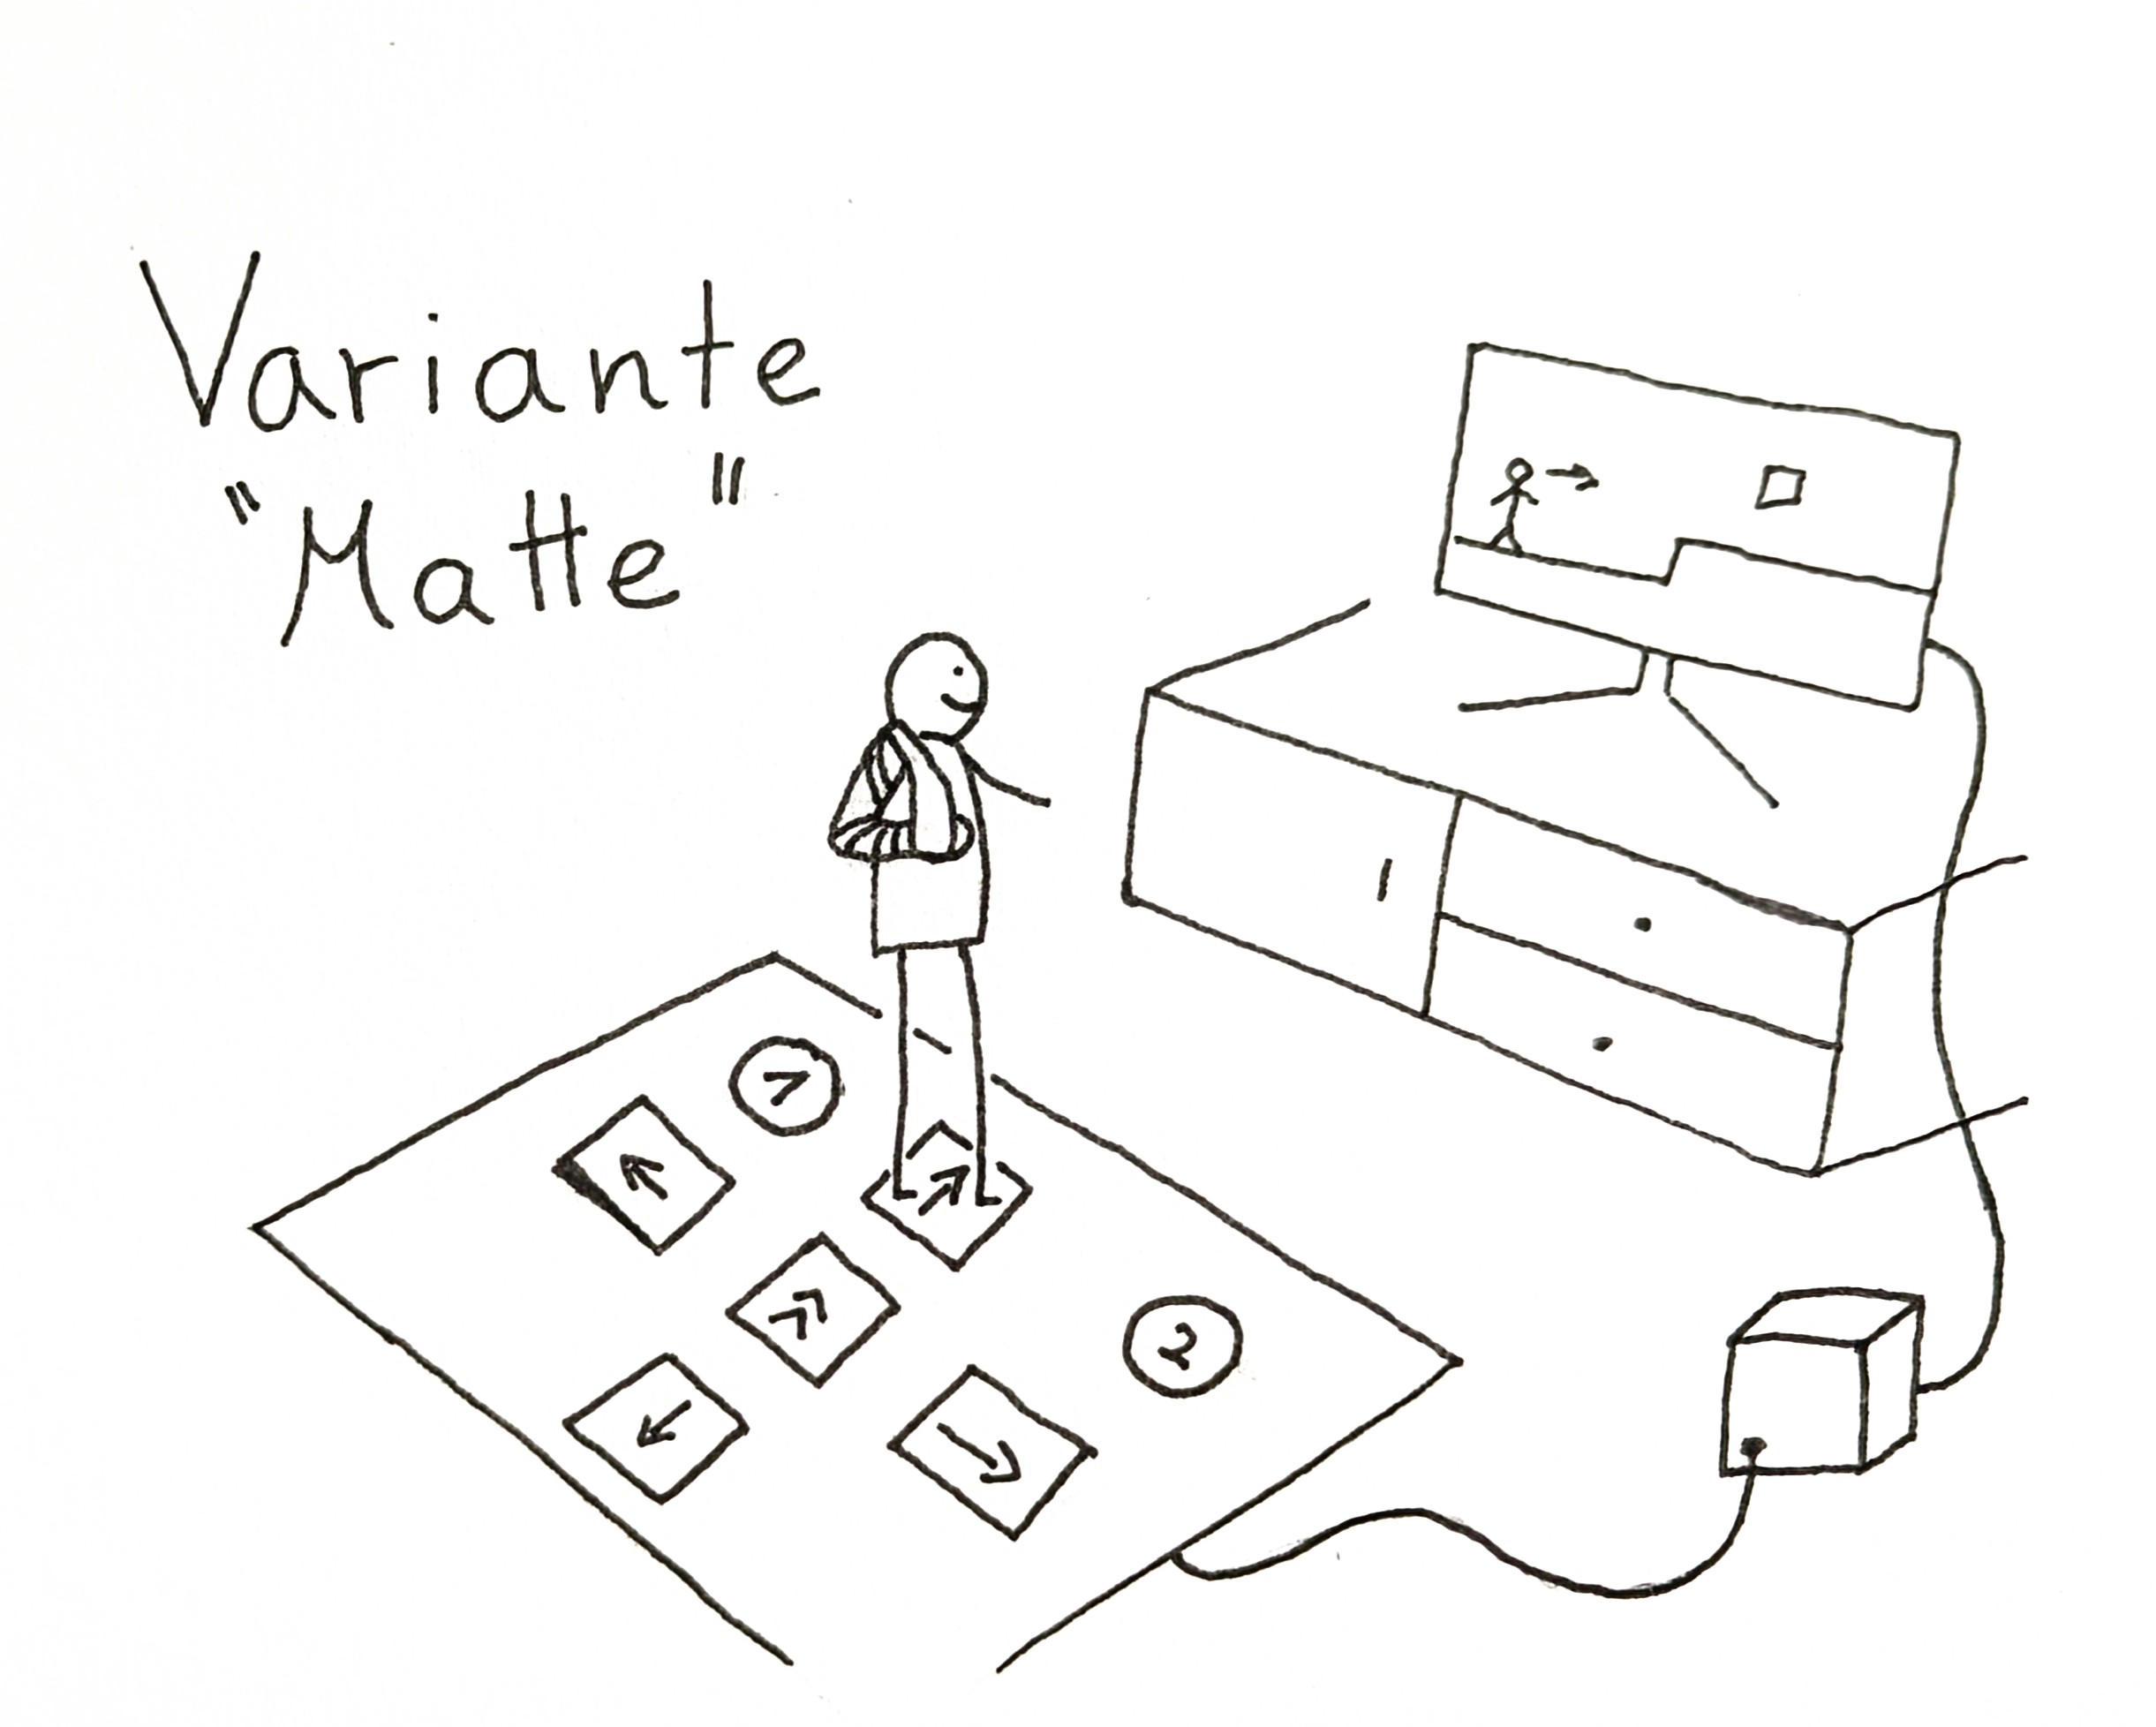 Variante
"Matte"
1
2